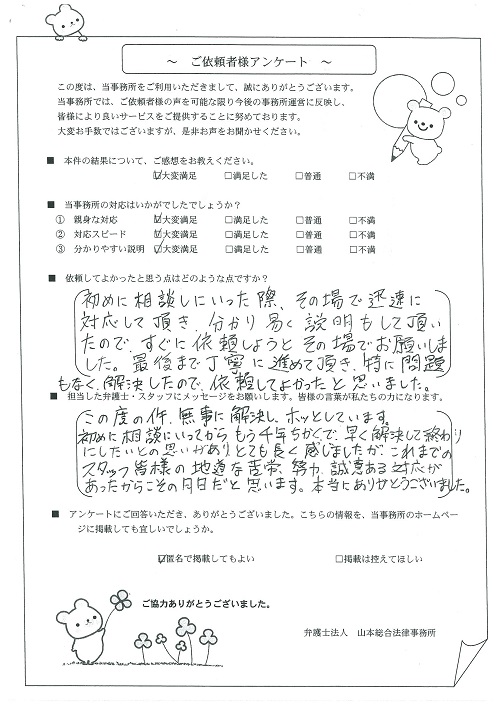 ～ ご依頼者様アンケート ～
この度は、当事務所をご利用いただきまして、誠にありがとうございます。
当事務所では、ご依頼者様の声を可能な限り今後の事務所運営に反映し、
皆様により良いサービスをご提供することに努めております。
大変お手数ではございますが、是非お声をお聞かせください。
■ 本件の結果について、ご感想をお教えください。
☑大変満足 □満足した □普通 □不満
■ 当事務所の対応はいかがでしたでしょうか？
① 親身な対応 ☑大変満足 □満足した □普通 □不満
② 対応スピード ☑大変満足 □満足した □普通 □不満
③ 分かりやすい説明 ☑大変満足 □満足した □普通 □不満
■ 依頼してよかったと思う点はどのような点ですか？
初めに相談しにいった際、その場で迅速に
対応して頂き、分かり易く説明もして頂い
たので、すぐに依頼しようとその場でお願いしま
した。最後まで丁寧に進めて頂き、特に問題
もなく、解決したので、依頼してよかったと思いました。
■ 担当した弁護士・スタッフにメッセージをお願いします。皆様の言葉が私たちの力になります。
この度の件、無事に解決し、ホッとしています。
初めに相談にいってから、もう半年ちかくで、早く解決して終わり
にしたいとの思いがありとても長く感じましたが、これまでの
スタッフ皆様の地道な苦労、努力、誠意ある対応が
あったからこその月日だと思います。本当にありがとうございました。
■ アンケートにご回答いただき、ありがとうございました。こちらの情報を、当事務所のホームペー
ジに掲載しても宜しいでしょうか。
☑匿名で掲載してもよい □掲載は控えてほしい
ご協力ありがとうございました。
弁護士法人 山本総合法律事務所